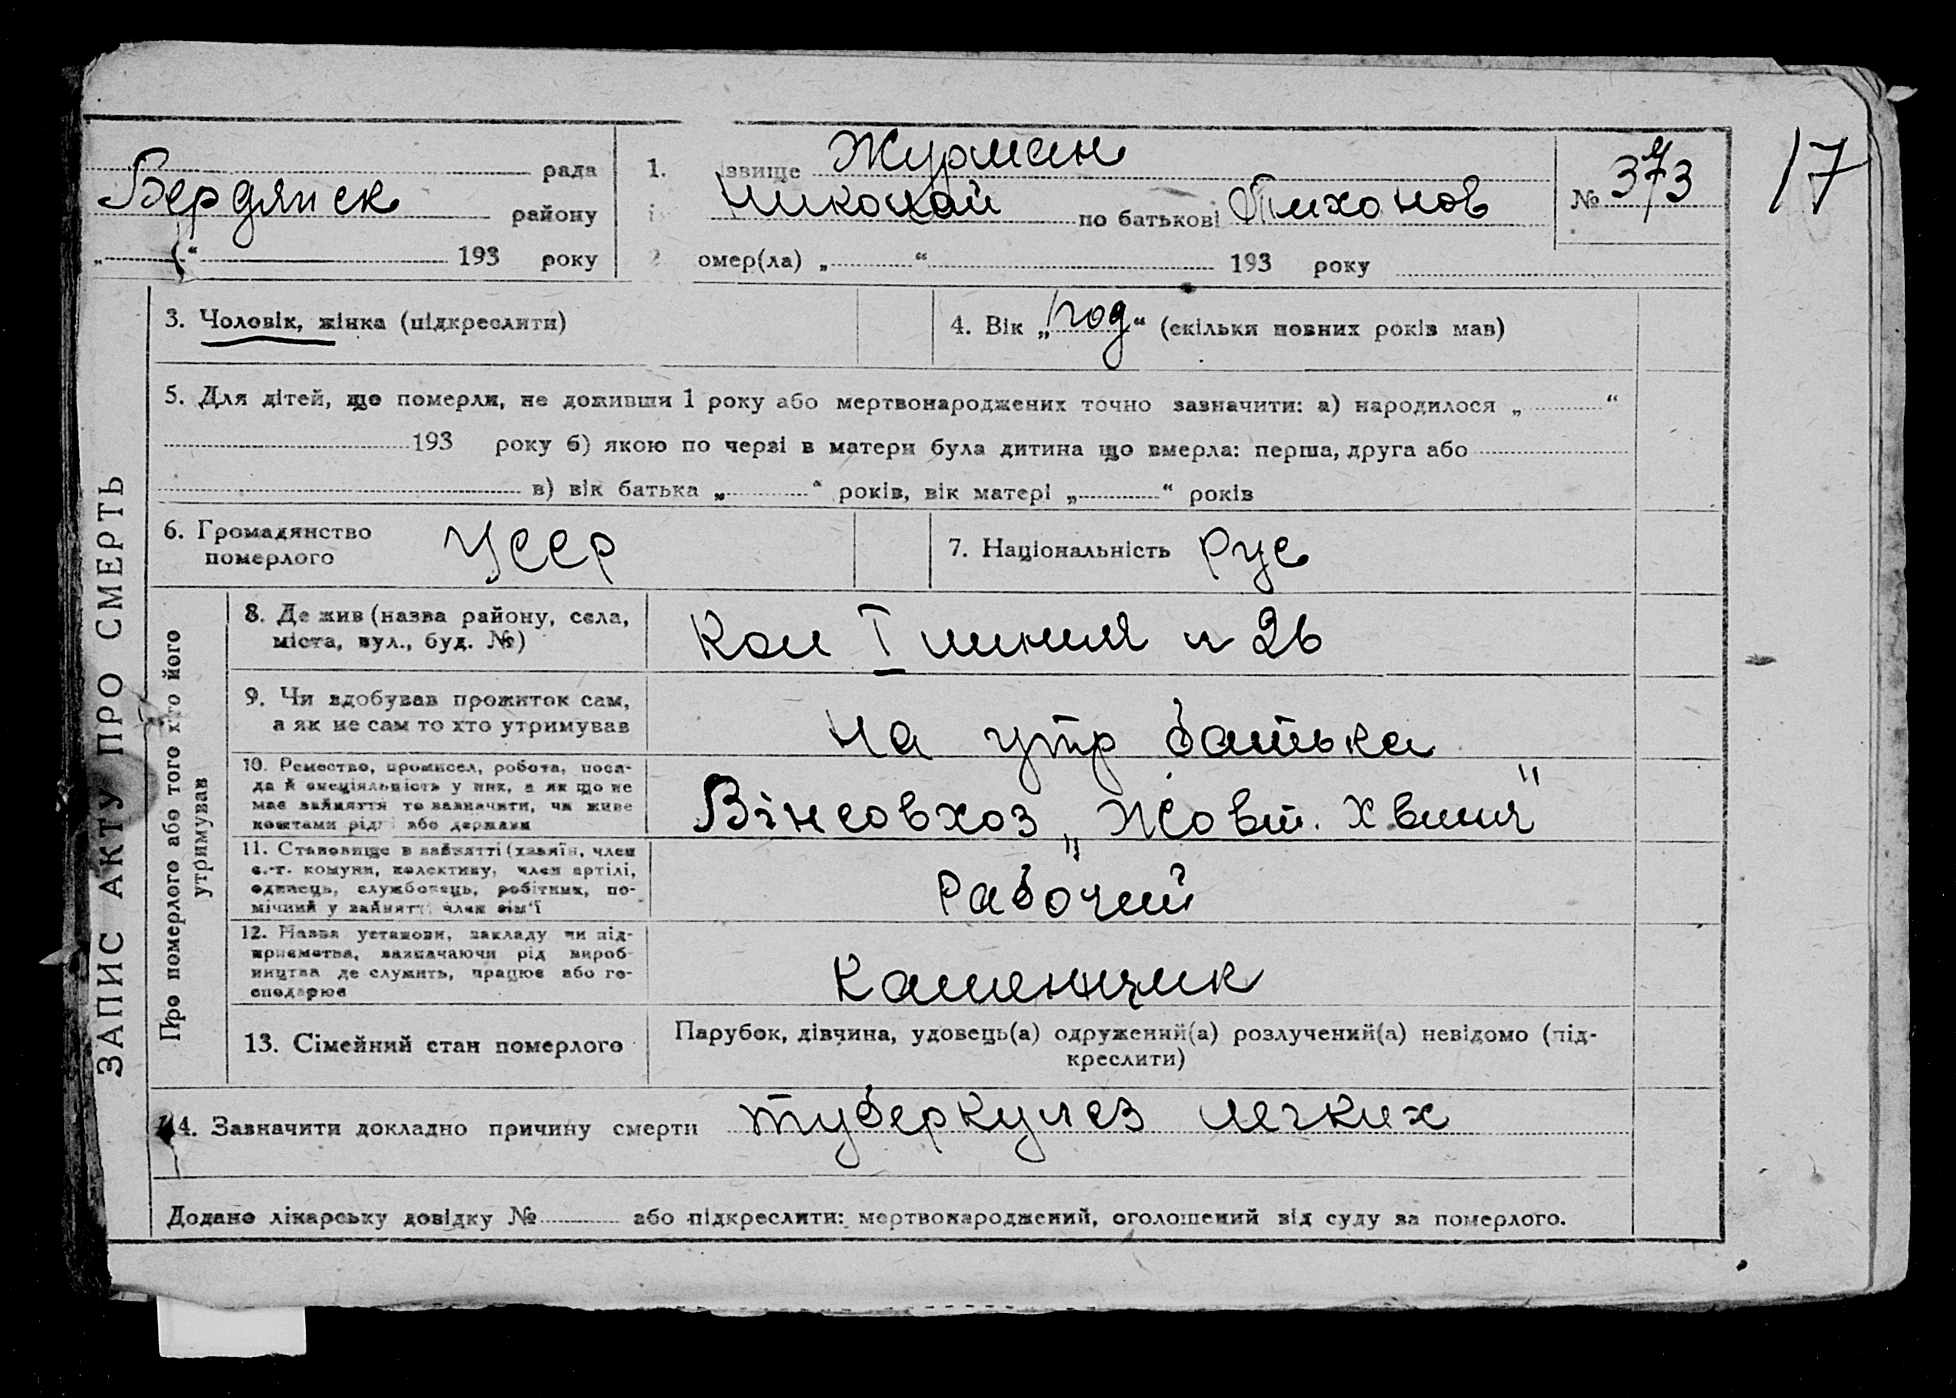 рада
Бердянск району
„ “ 193 року
1. ізвище Журман
Николай по батькові Тихонов
омер(ла) „ “ 193 року
№ 373
17
3. Чоловік, жінка (підкреслити)
4. Вік „1 год“ (скільки повних років мав)
5. Для дітей, що померли, не доживши 1 року або мертвонароджених точно зазначити: а) народилося „ “
193 року б) якою по черзі в матери була дитина що вмерла: перша, друга або
в) вік батька „ “ років, вік матері „ “ років
6. Громадянство
померлого
УССР
7. Національність Рус
ЗАПИС АКТУ ПРО СМЕРТЬ
Про померлого або того хто його
утримував
8. Де жив (назва району, села,
міста, вул., буд. №)
Кол I линия н 26
9. Чи здобував прожиток сам,
а як не сам то хто утримував
на утр батька
10. Ремество, промисел, робота, поса-
да й спеціяльність у них, а як що не
має зайняття то зазначити, чи живе
коштами рідні або держави
Вінсовхоз „Жовт. Хвиля"
11. Становище в зайнятті (хазяїн, член
с.-г. комуни, колективу, член артілі,
одинець, службовець, робітник, по-
мічний у зайнятті член сім'ї
Рабочий
12. Назва установи, закладу чи під-
приємства, зазначаючи рід вироб-
ництва де служить, працює або го-
сподарює
Каменщик
13. Сімейний стан померлого
Парубок, дівчина, удовець(а) одружений(а) розлучений(а) невідомо (під-
креслити)
14. Зазначити докладно причину смерти туберкулез легких
Додано лікарську довідку № або підкреслити: мертвонароджений, оголошений від суду за померлого.